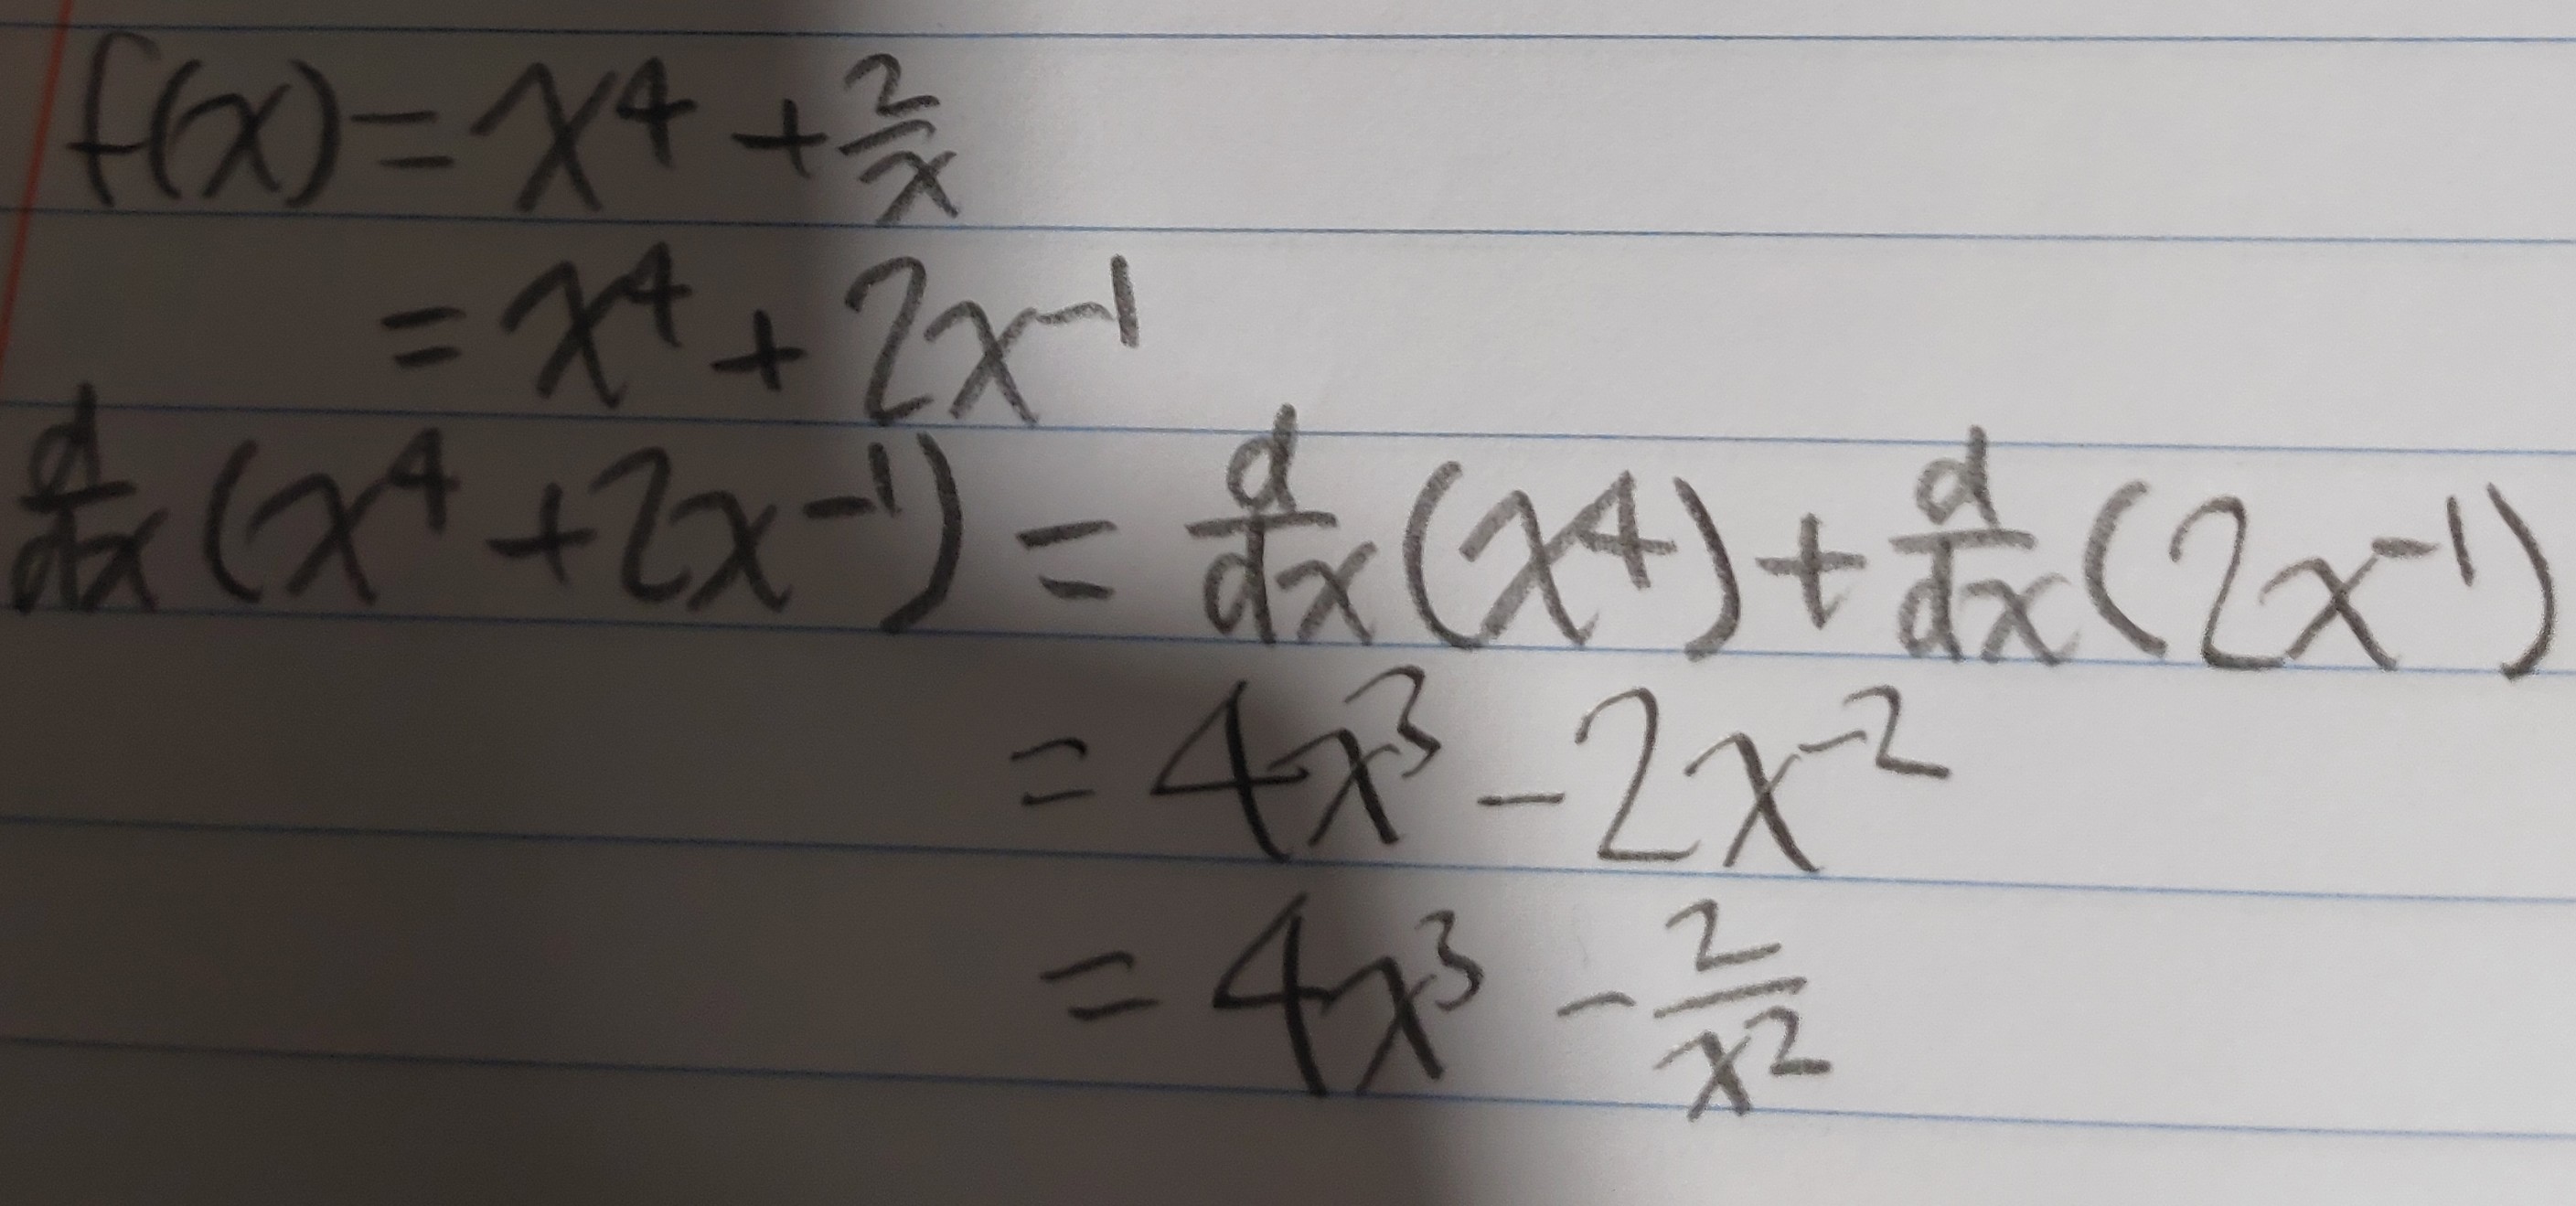 f(x) = x⁴ + 2/x
= x⁴ + 2x⁻¹
d/dx (x⁴ + 2x⁻¹) = d/dx (x⁴) + d/dx (2x⁻¹)
= 4x³ − 2x⁻²
= 4x³ − 2/x²